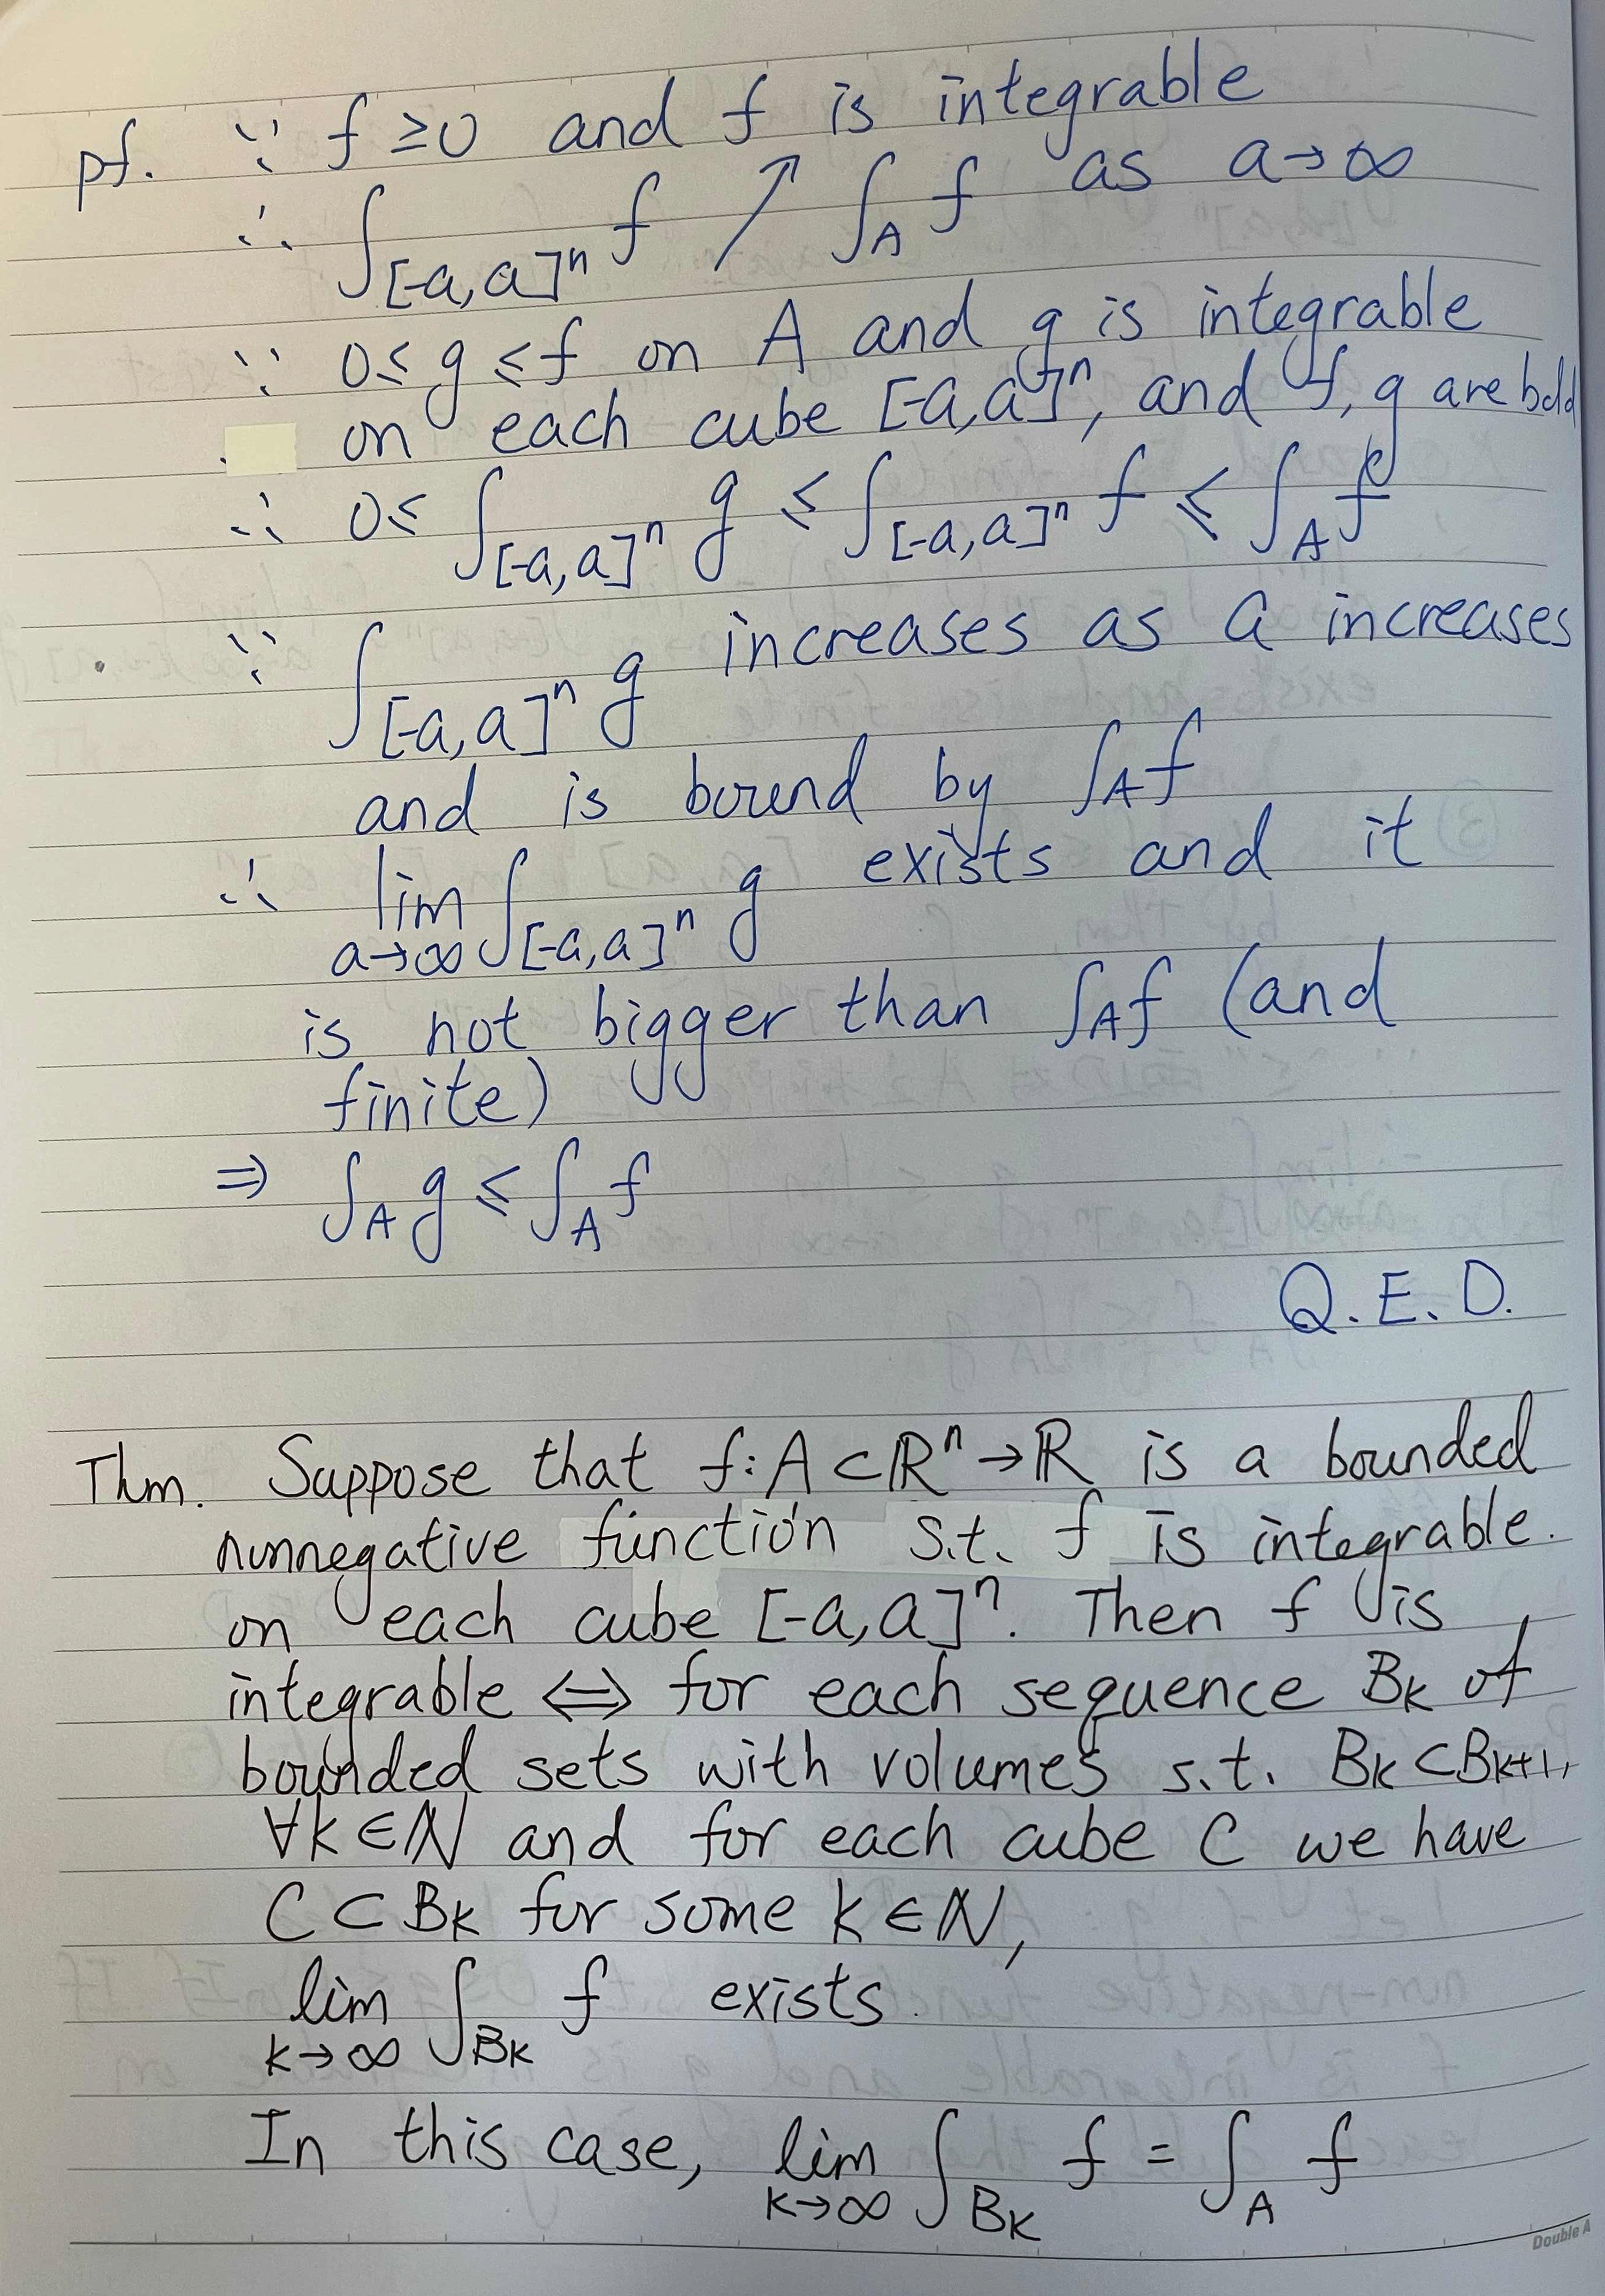 pf. ∵ f ≥ 0 and f is integrable
∴ ∫_{[-a,a]^n} f ↗ ∫_A f as a→∞
∵ 0 ≤ g ≤ f on A and g is integrable
on each cube [-a,a]^n, and f, g are bdd
∴ 0 ≤ ∫_{[-a,a]^n} g ≤ ∫_{[-a,a]^n} f ≤ ∫_A f
∵ ∫_{[-a,a]^n} g increases as a increases
and is bound by ∫_A f
∴ lim_{a→∞} ∫_{[-a,a]^n} g exists and it
is not bigger than ∫_A f (and
finite)
⇒ ∫_A g ≤ ∫_A f
Q.E.D.
Thm. Suppose that f: A ⊂ ℝ^n → ℝ is a bounded
nonnegative function s.t. f is integrable
on each cube [-a,a]^n. Then f is
integrable ⇔ for each sequence B_k of
bounded sets with volumes s.t. B_k ⊂ B_{k+1},
∀k ∈ ℕ and for each cube C we have
C ⊂ B_k for some k ∈ ℕ,
lim_{k→∞} ∫_{B_k} f exists.
In this case, lim_{k→∞} ∫_{B_k} f = ∫_A f
Double A